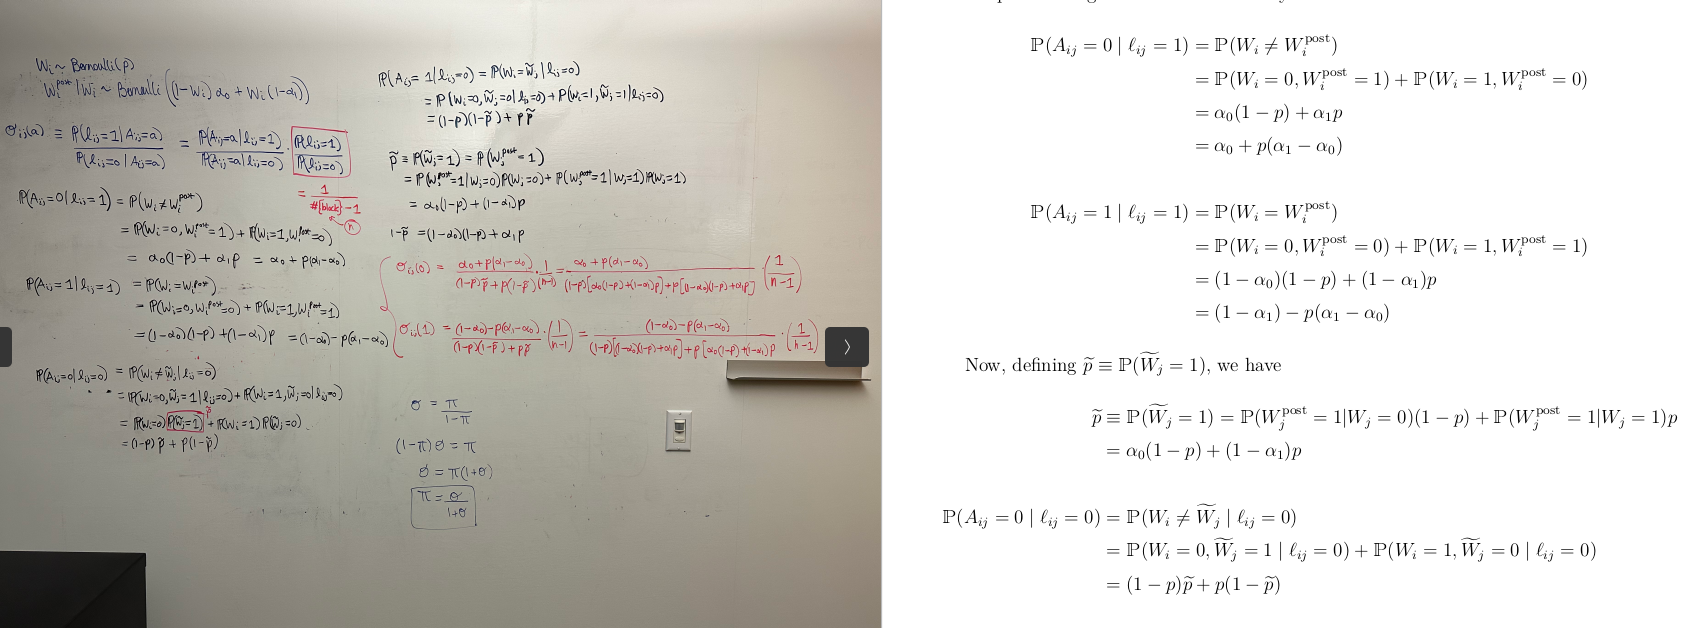 Wᵢ ~ Bernoulli(p)
Wᵢᵖᵒˢᵗ | Wᵢ ~ Bernoulli((1-Wᵢ)α₀ + Wᵢ(1-α₁))
σᵢⱼ(a) ≡ P(ℓᵢⱼ=1 | Aᵢⱼ=a) / P(ℓᵢⱼ=0 | Aᵢⱼ=a) = P(Aᵢⱼ=a | ℓᵢⱼ=1) / P(Aᵢⱼ=a | ℓᵢⱼ=0) · P(ℓᵢⱼ=1) / P(ℓᵢⱼ=0)
= 1 / (#{block} - 1)
n
P(Aᵢⱼ=0 | ℓᵢⱼ=1) = P(Wᵢ ≠ Wᵢᵖᵒˢᵗ)
= P(Wᵢ=0, Wᵢᵖᵒˢᵗ=1) + P(Wᵢ=1, Wᵢᵖᵒˢᵗ=0)
= α₀(1-p) + α₁p = α₀ + p(α₁-α₀)
P(Aᵢⱼ=1 | ℓᵢⱼ=1) = P(Wᵢ = Wᵢᵖᵒˢᵗ)
= P(Wᵢ=0, Wᵢᵖᵒˢᵗ=0) + P(Wᵢ=1, Wᵢᵖᵒˢᵗ=1)
= (1-α₀)(1-p) + (1-α₁)p = (1-α₀) - p(α₁-α₀)
P(Aᵢⱼ=0 | ℓᵢⱼ=0) = P(Wᵢ ≠ W̃ⱼ | ℓᵢⱼ=0)
= P(Wᵢ=0, W̃ⱼ=1 | ℓᵢⱼ=0) + P(Wᵢ=1, W̃ⱼ=0 | ℓᵢⱼ=0)
= P(Wᵢ=0) P(W̃ⱼ=1) + P(Wᵢ=1) P(W̃ⱼ=0)
p̃
= (1-p)p̃ + p(1-p̃)
P(Aᵢⱼ=1 | ℓᵢⱼ=0) = P(Wᵢ = W̃ⱼ | ℓᵢⱼ=0)
= P(Wᵢ=0, W̃ⱼ=0 | ℓᵢⱼ=0) + P(Wᵢ=1, W̃ⱼ=1 | ℓᵢⱼ=0)
= (1-p)(1-p̃) + p p̃
p̃ ≡ P(W̃ⱼ=1) = P(Wⱼᵖᵒˢᵗ=1)
= P(Wⱼᵖᵒˢᵗ=1 | Wⱼ=0) P(Wⱼ=0) + P(Wⱼᵖᵒˢᵗ=1 | Wⱼ=1) P(Wⱼ=1)
= α₀(1-p) + (1-α₁)p
1-p̃ = (1-α₀)(1-p) + α₁p
σᵢⱼ(0) = (α₀ + p(α₁-α₀)) / ((1-p)p̃ + p(1-p̃)) · 1/(n-1) = (α₀ + p(α₁-α₀)) / ((1-p)[α₀(1-p) + (1-α₁)p] + p[(1-α₀)(1-p) + α₁p]) · (1/(n-1))
σᵢⱼ(1) = ((1-α₀) - p(α₁-α₀)) / ((1-p)(1-p̃) + pp̃) · (1/(n-1)) = ((1-α₀) - p(α₁-α₀)) / ((1-p)[(1-α₀)(1-p) + α₁p] + p[α₀(1-p) + (1-α₁)p) · (1/(n-1))
σ = π / (1-π)
(1-π)σ = π
σ = π(1+σ)
π = σ / (1+σ)
ℙ(Aᵢⱼ = 0 | ℓᵢⱼ = 1) = ℙ(Wᵢ ≠ Wᵢᵖᵒˢᵗ)
= ℙ(Wᵢ = 0, Wᵢᵖᵒˢᵗ = 1) + ℙ(Wᵢ = 1, Wᵢᵖᵒˢᵗ = 0)
= α₀(1 − p) + α₁p
= α₀ + p(α₁ − α₀)
ℙ(Aᵢⱼ = 1 | ℓᵢⱼ = 1) = ℙ(Wᵢ = Wᵢᵖᵒˢᵗ)
= ℙ(Wᵢ = 0, Wᵢᵖᵒˢᵗ = 0) + ℙ(Wᵢ = 1, Wᵢᵖᵒˢᵗ = 1)
= (1 − α₀)(1 − p) + (1 − α₁)p
= (1 − α₁) − p(α₁ − α₀)
Now, defining p̃ ≡ ℙ(W̃ⱼ = 1), we have
p̃ ≡ ℙ(W̃ⱼ = 1) = ℙ(Wⱼᵖᵒˢᵗ = 1|Wⱼ = 0)(1 − p) + ℙ(Wⱼᵖᵒˢᵗ = 1|Wⱼ = 1)p
= α₀(1 − p) + (1 − α₁)p
ℙ(Aᵢⱼ = 0 | ℓᵢⱼ = 0) = ℙ(Wᵢ ≠ W̃ⱼ | ℓᵢⱼ = 0)
= ℙ(Wᵢ = 0, W̃ⱼ = 1 | ℓᵢⱼ = 0) + ℙ(Wᵢ = 1, W̃ⱼ = 0 | ℓᵢⱼ = 0)
= (1 − p)p̃ + p(1 − p̃)